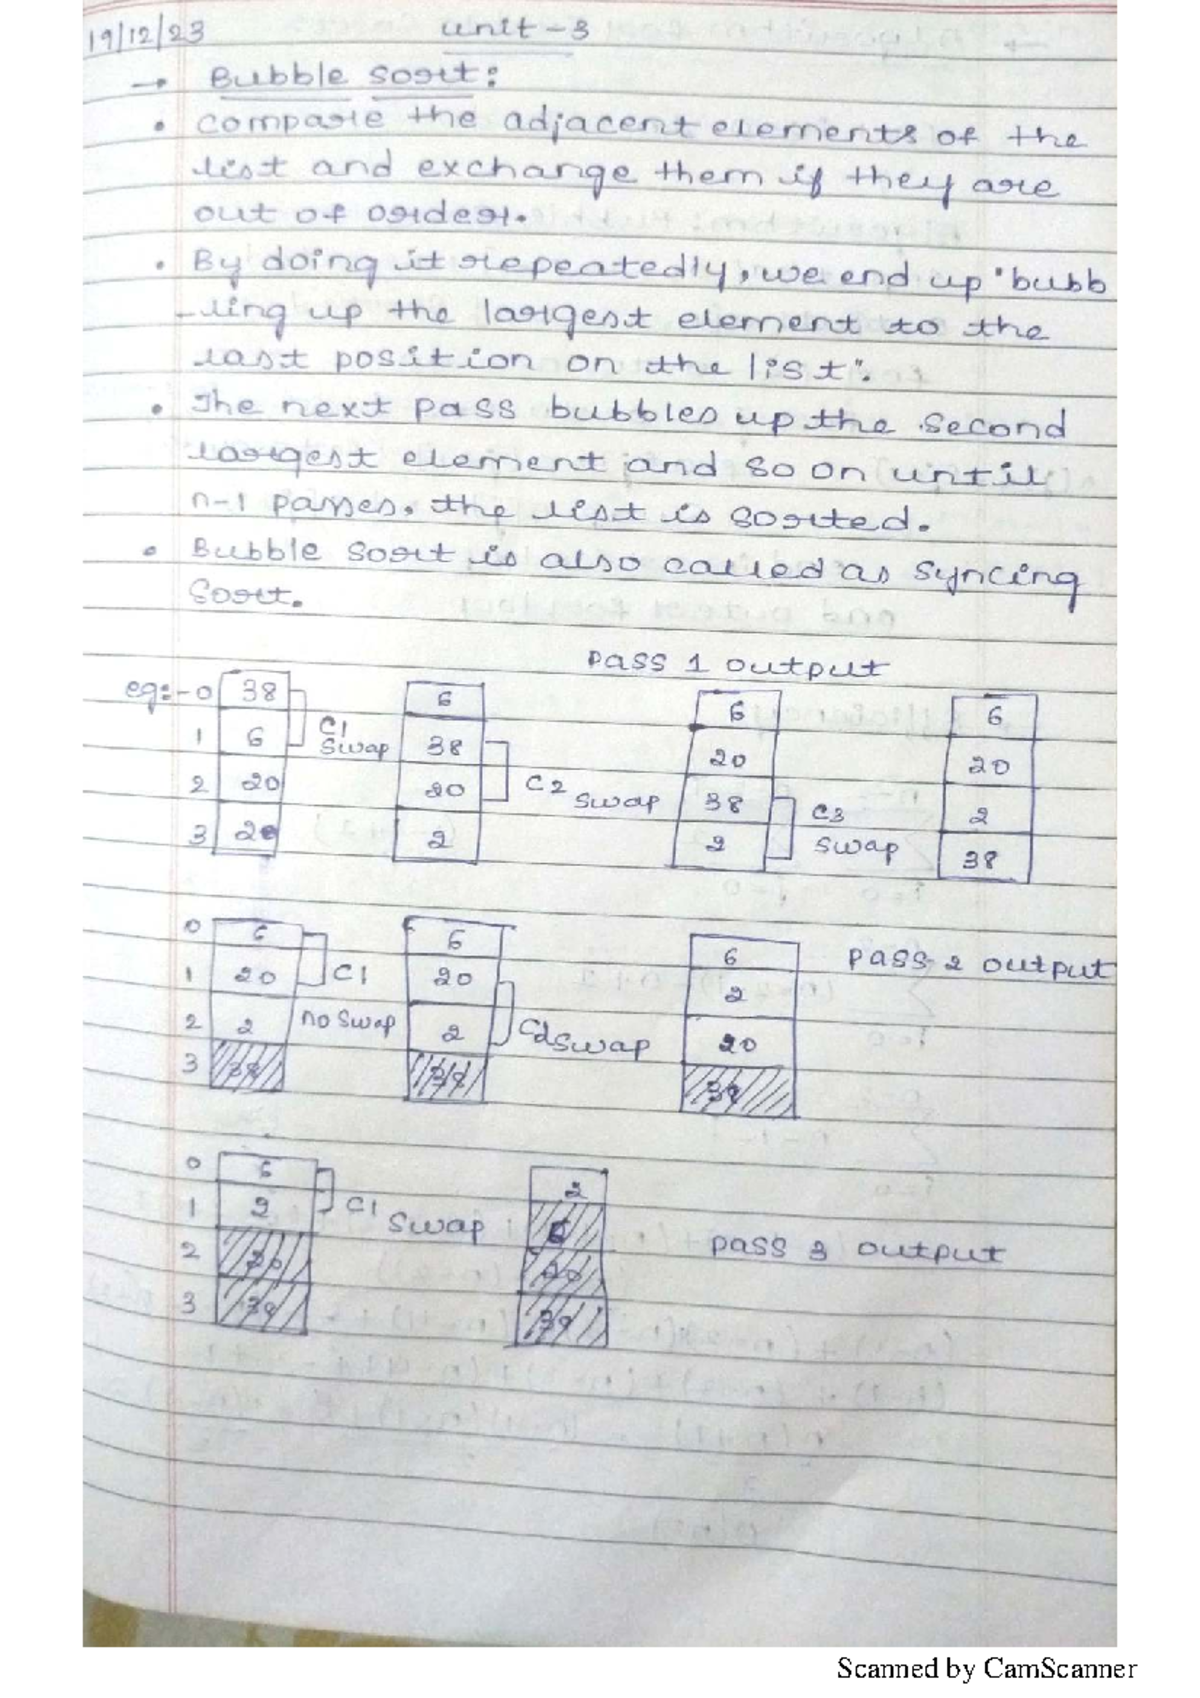 19/12/23 Unit-3
→ Bubble Sort:
• Compare the adjacent elements of the
list and exchange them if they are
out of order.
• By doing it repeatedly, we end up "bubb
-ling up the largest element to the
last position on the list".
• The next pass bubbles up the second
largest element and so on until
n-1 passes, the list is sorted.
• Bubble sort is also called as syncing
Sort.
Pass 1 output
eg:- 0 38 6 6 6
1 6 C1 Swap 38 20 20
2 20 20 C2 Swap 38 C3 2
3 2 2 Swap 38
0 6 6 6 Pass-2 output
1 20 C1 20 2
2 2 no swap 2 C2 Swap 20
3 38 38 38
0 6 2
1 2 C1 Swap 6 Pass 3 output
2 20 20
3 38 38
Scanned by CamScanner